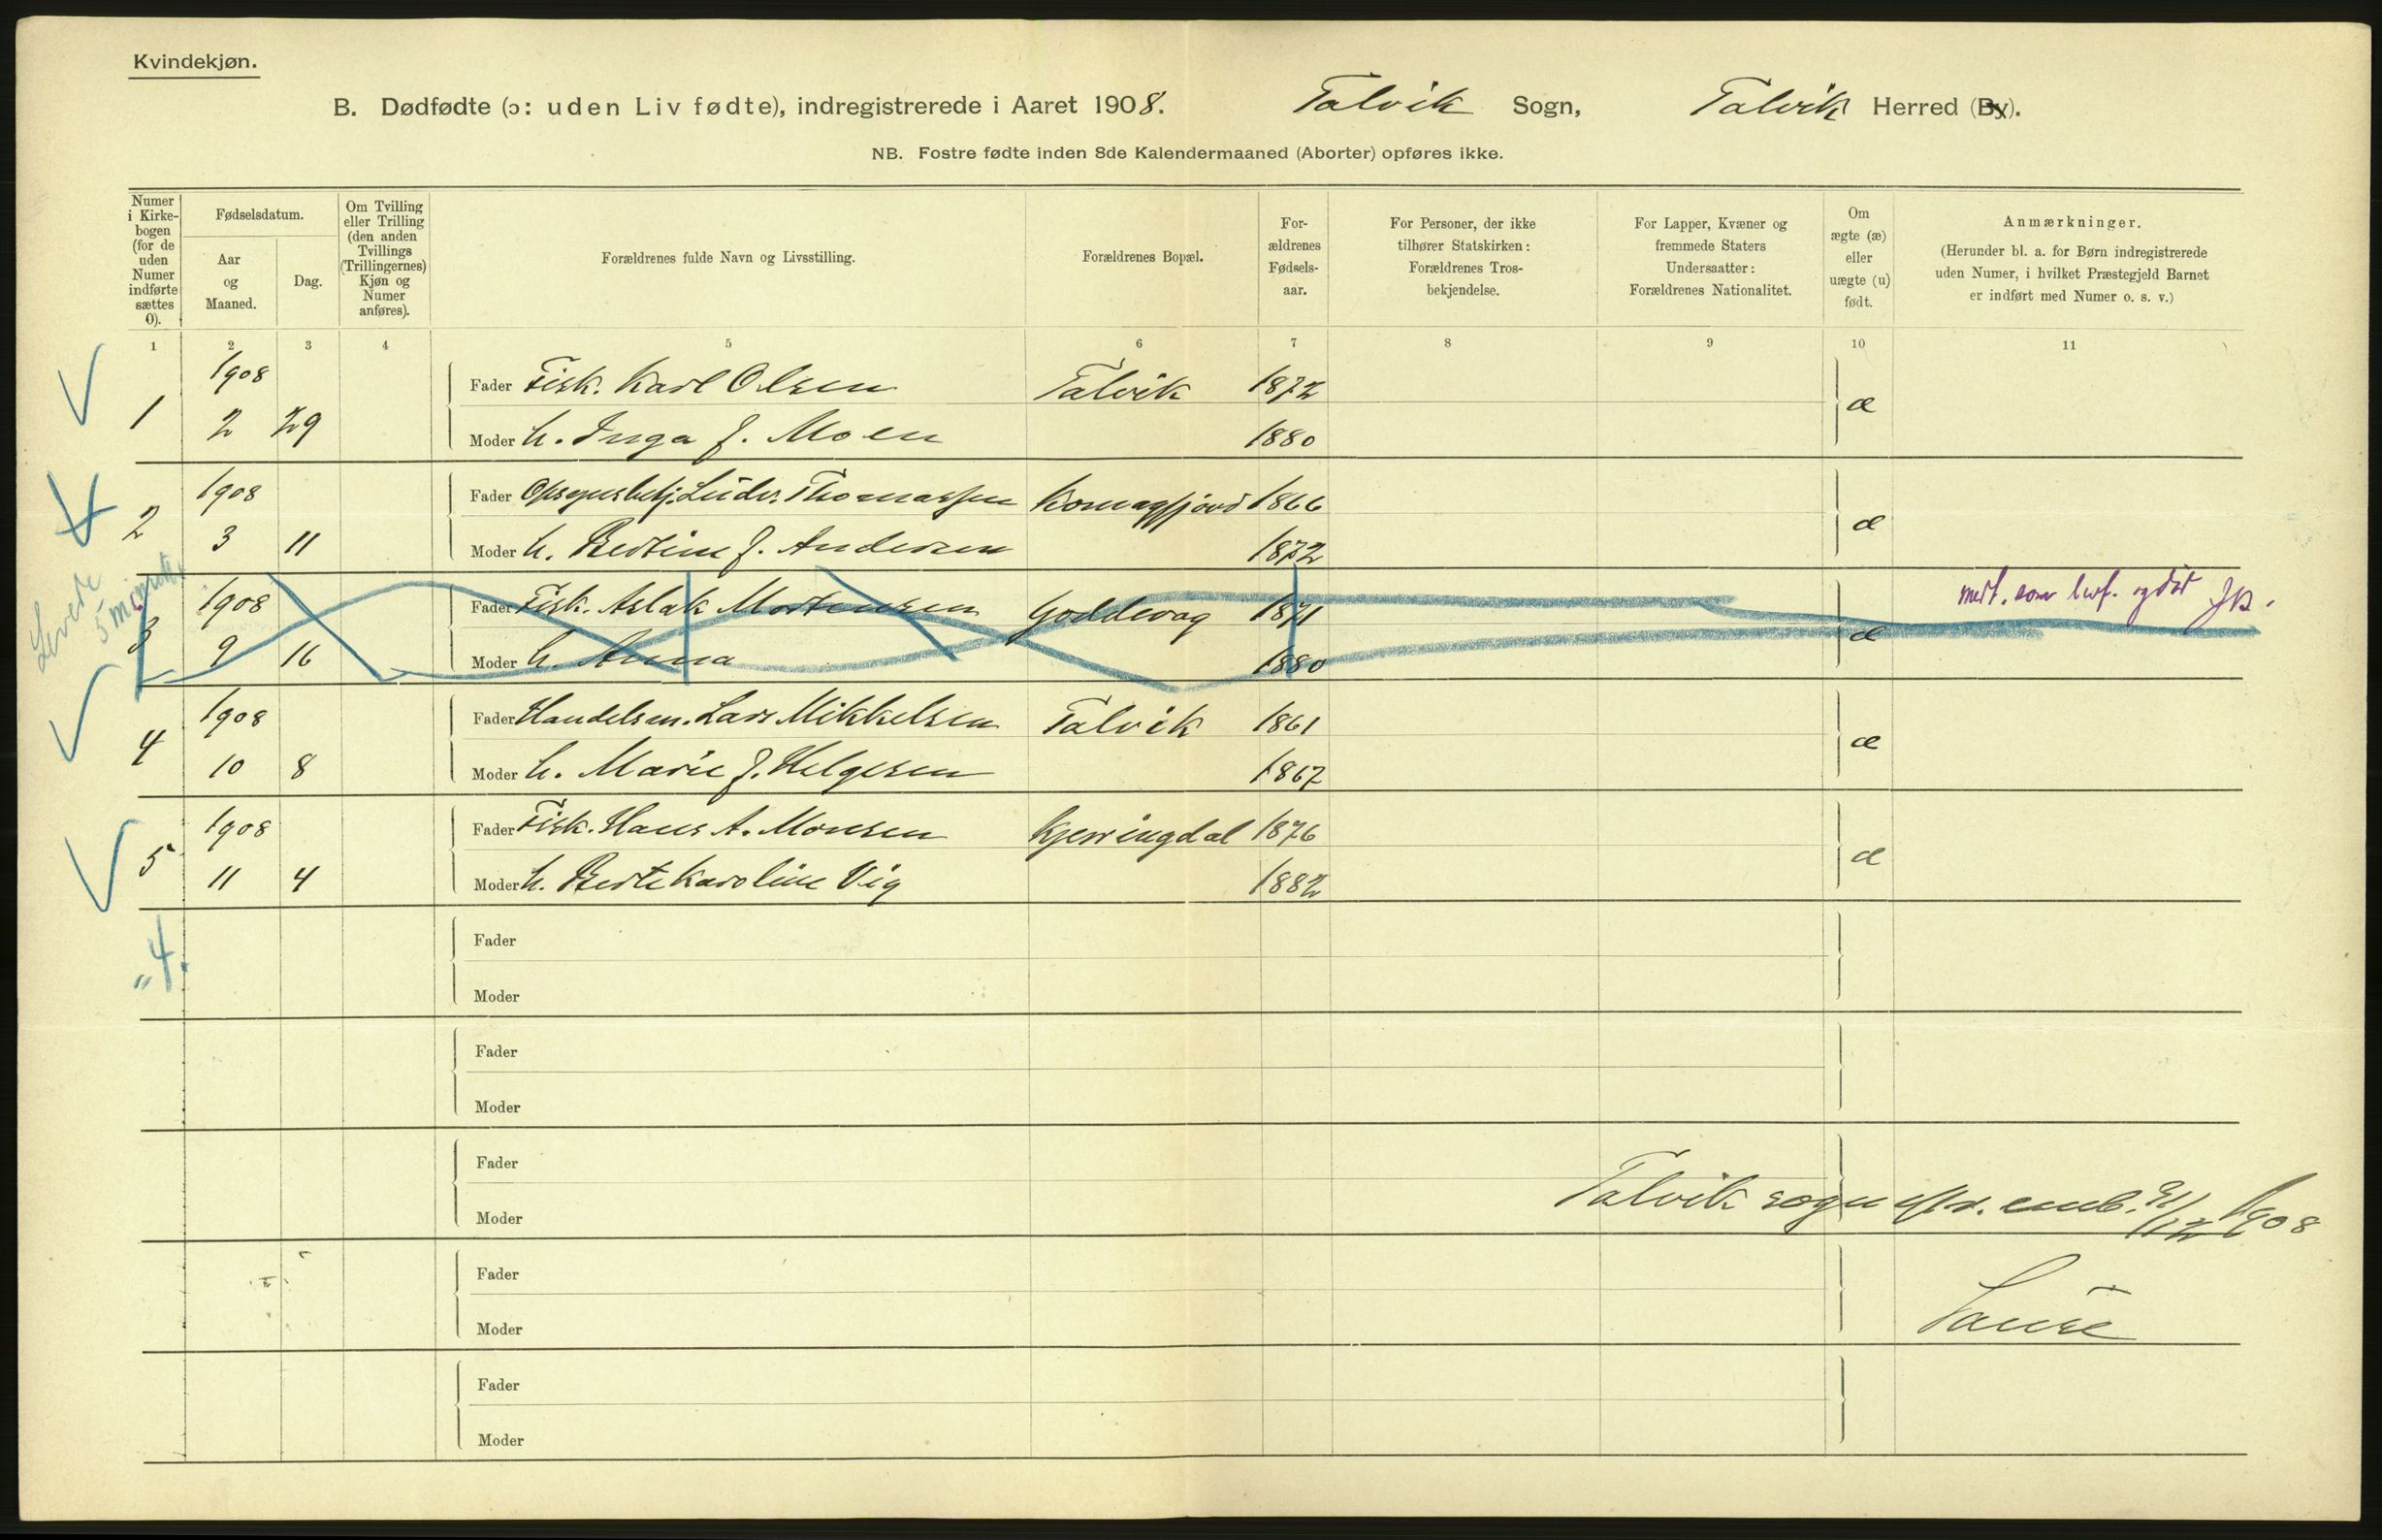 Kvindekjøn.
B. Dødfødte (ɔ: uden Liv fødte), indregistrerede i Aaret 1908. Talvik Sogn, Talvik Herred (By).
NB. Fostre fødte inden 8de Kalendermaaned (Aborter) opføres ikke.
Numer i Kirkebogen (for de uden Numer indførte sættes 0).
Fødselsdatum.
Aar og Maaned.
Dag.
Om Tvilling eller Trilling (den anden Tvillings (Trillingernes) Kjøn og Numer anføres).
Forældrenes fulde Navn og Livsstilling.
Forældrenes Bopæl.
Forældrenes Fødselsaar.
For Personer, der ikke tilhører Statskirken: Forældrenes Trosbekjendelse.
For Lapper, Kvæner og fremmede Staters Undersaatter: Forældrenes Nationalitet.
Om ægte (æ) eller uægte (u) født.
Anmærkninger.
(Herunder bl. a. for Børn indregistrerede uden Numer, i hvilket Præstegjeld Barnet er indført med Numer o. s. v.)
1 2 3 4 5 6 7 8 9 10 11
1908 Fader Fisk. Karl Olsen Talvik 1872
1 2 29 Moder h. Inga f. Moen 1880 æ
1908 Fader Opsynsbetj. Lüder Thomassen Komagfjord 1866
2 3 11 Moder h. Bertine f. Andersen 1872 æ
Levede 5 minutter
1908 Fader Fisk. Aslak Mortensen Goddevag 1871 medt. som levf. og død
3 9 16 Moder h. Anna 1880 æ
1908 Fader Handelsm. Lars Mikkelsen Talvik 1861
4 10 8 Moder h. Marie f. Helgesen 1867 æ
1908 Fader Fisk. Hans A. Monsen Kjerringdal 1876
5 11 4 Moder h. Berte Karoline Vig 1882 æ
„4. Fader
Moder
Fader
Moder
Fader
Talvik sogn 31/12 1908
Moder
Fader
Moder
Fader
Moder